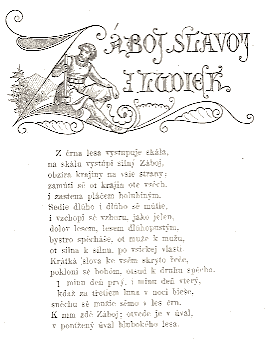 ZÁBOJ, SLAVOJ
I LUDIEK
Z črna lesa vystupuje skála,
na skálu vystúpi silný Záboj,
obzíra krajiny na vsie strany;
zamúti sě ot krajin ote všěch,
i zastena pláčem holubiným.
Sedie dlúho i dlúho sě mútie,
i vzchopi sě vzhóru, jako jelen,
dolóv lesem, lesem dlúhopustým,
bystro spěcháše, ot muže k mužu,
ot silna k silnu, po vsickej vlasti.
Krátká slova ke vsěm skryto řeče,
pokloni sě bohóm, otsud k druhu spěcha.
I minu deň prvý, i minu deň vterý,
kdaž za třetiem luna v noci bieše,
sněchu sě mužie sěmo v les črn.
K nim zdě Záboj; otvede je v úval,
v ponížený úval hlubokého lesa.